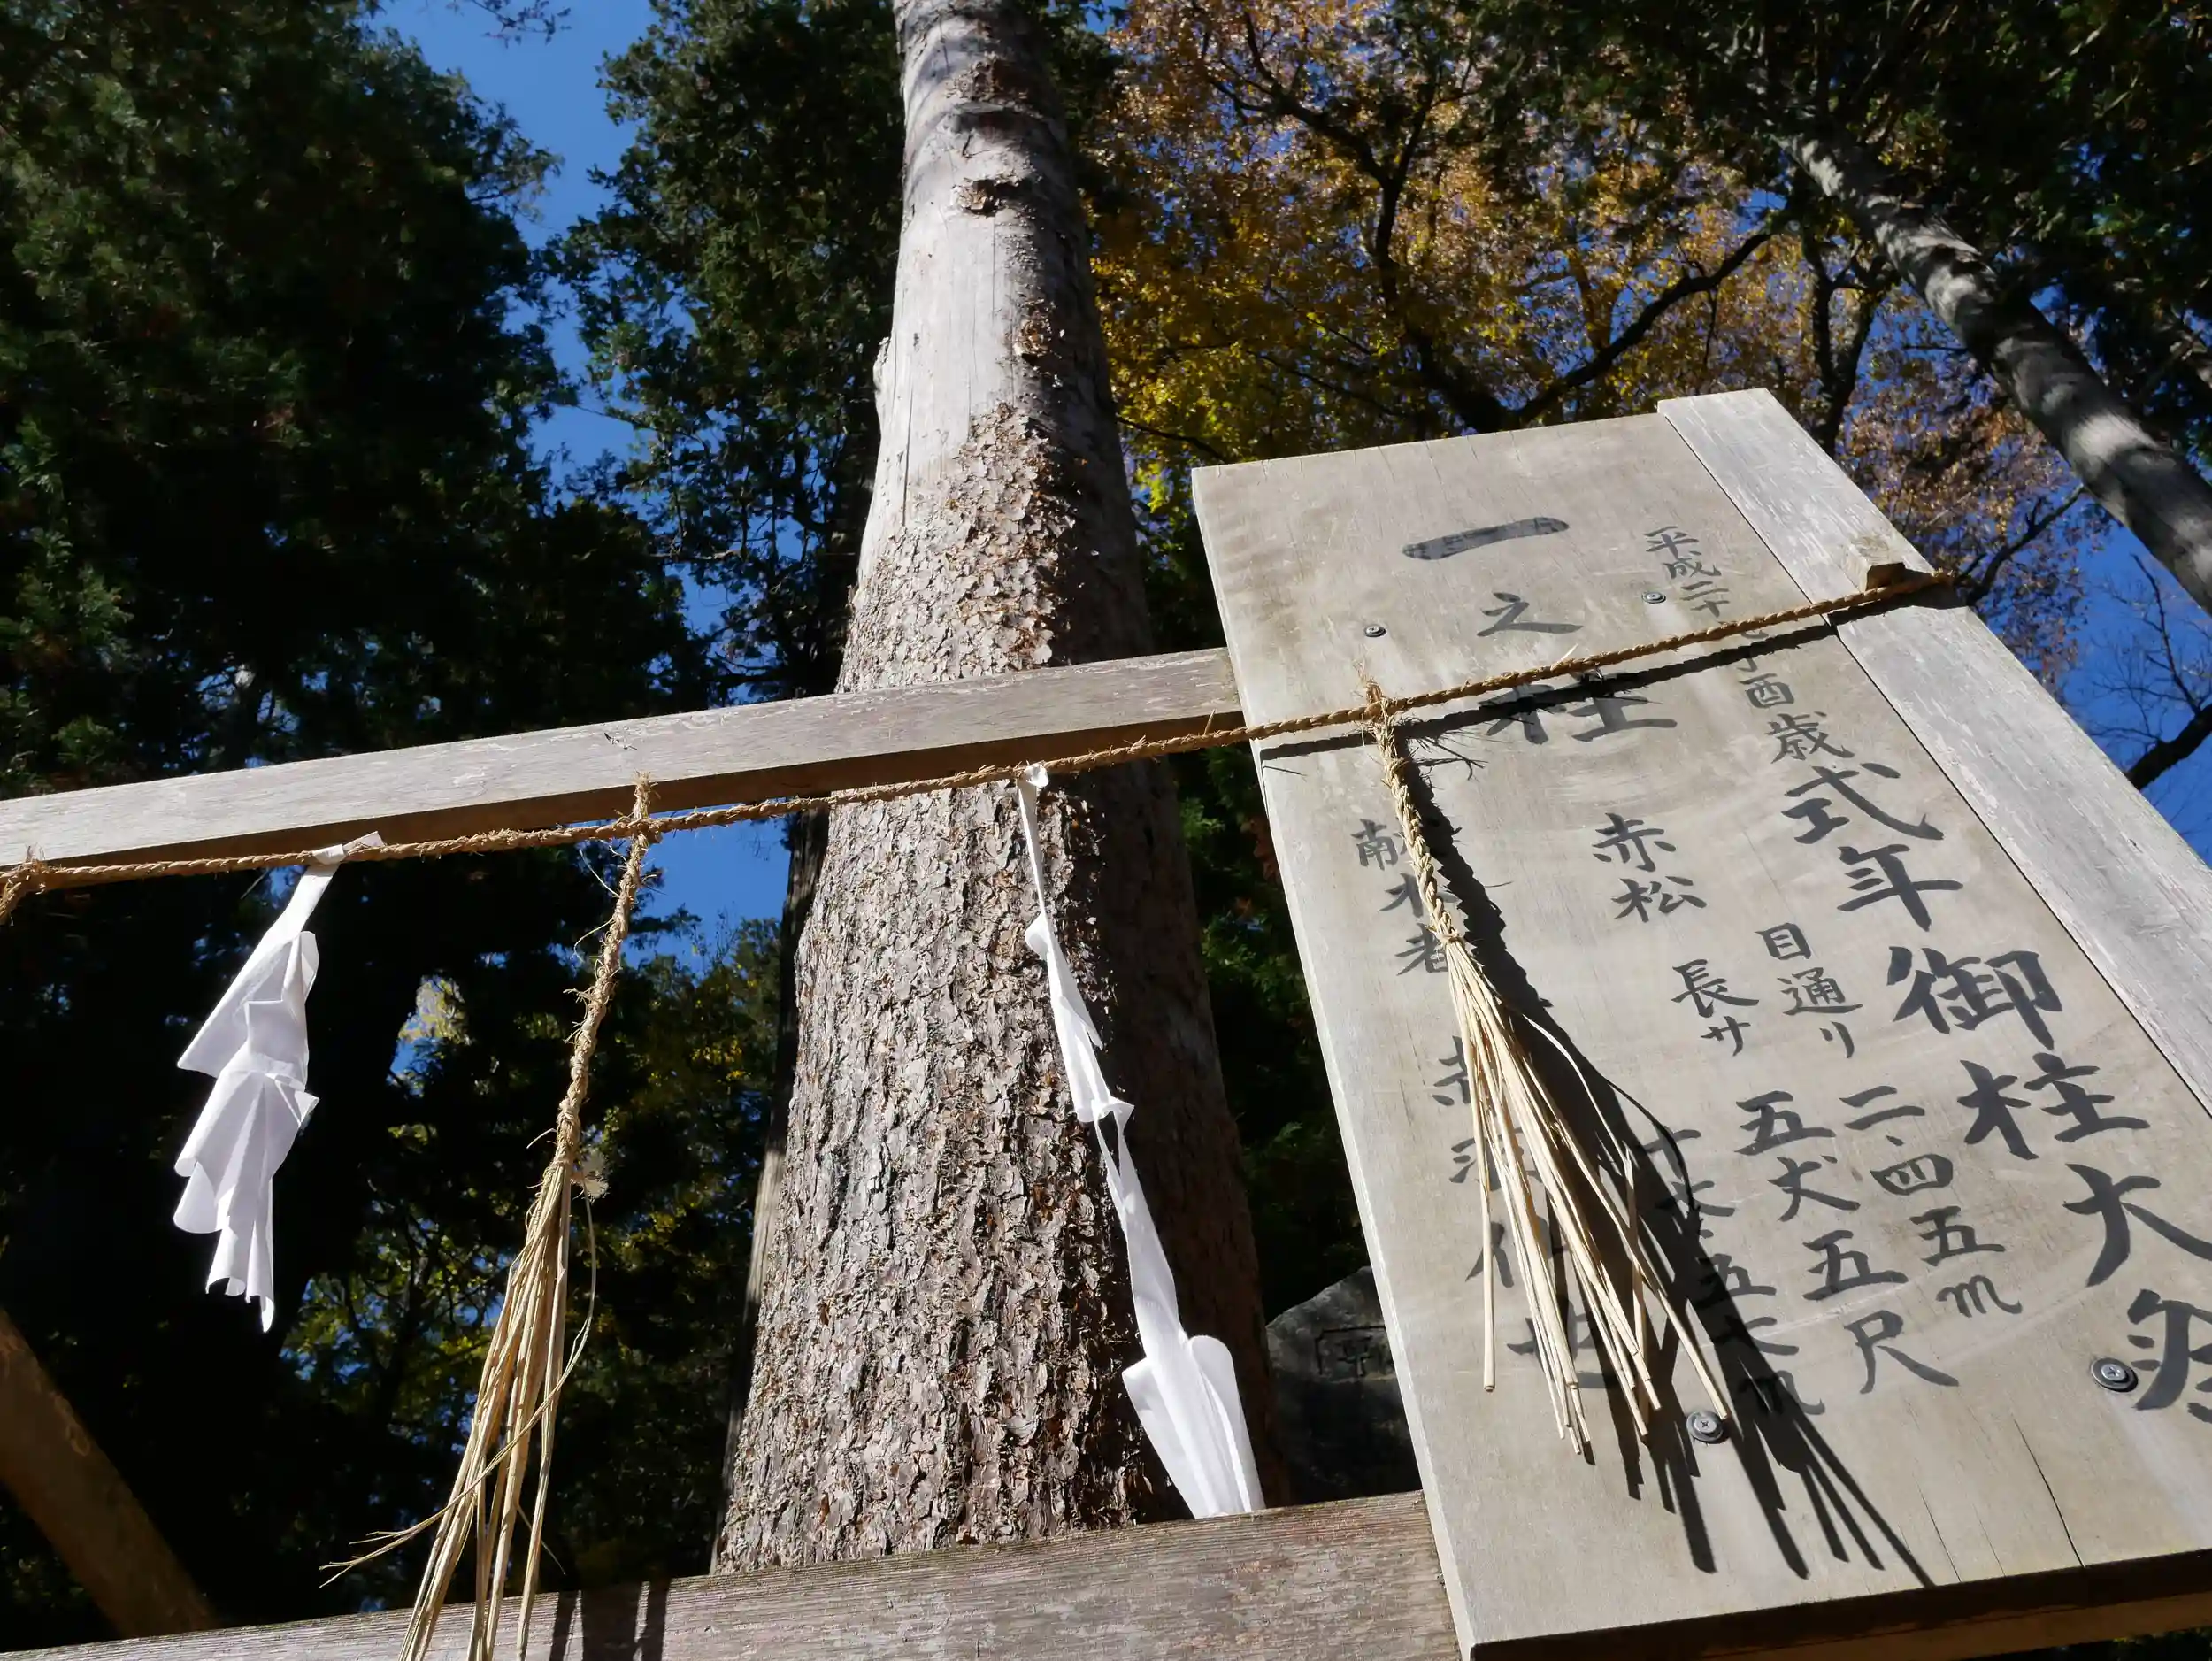 平成二十九丁酉歳 式年御柱大祭
目通り 二、四五m
長サ 五丈五尺
赤松
十六、五六m
一之柱
献木者